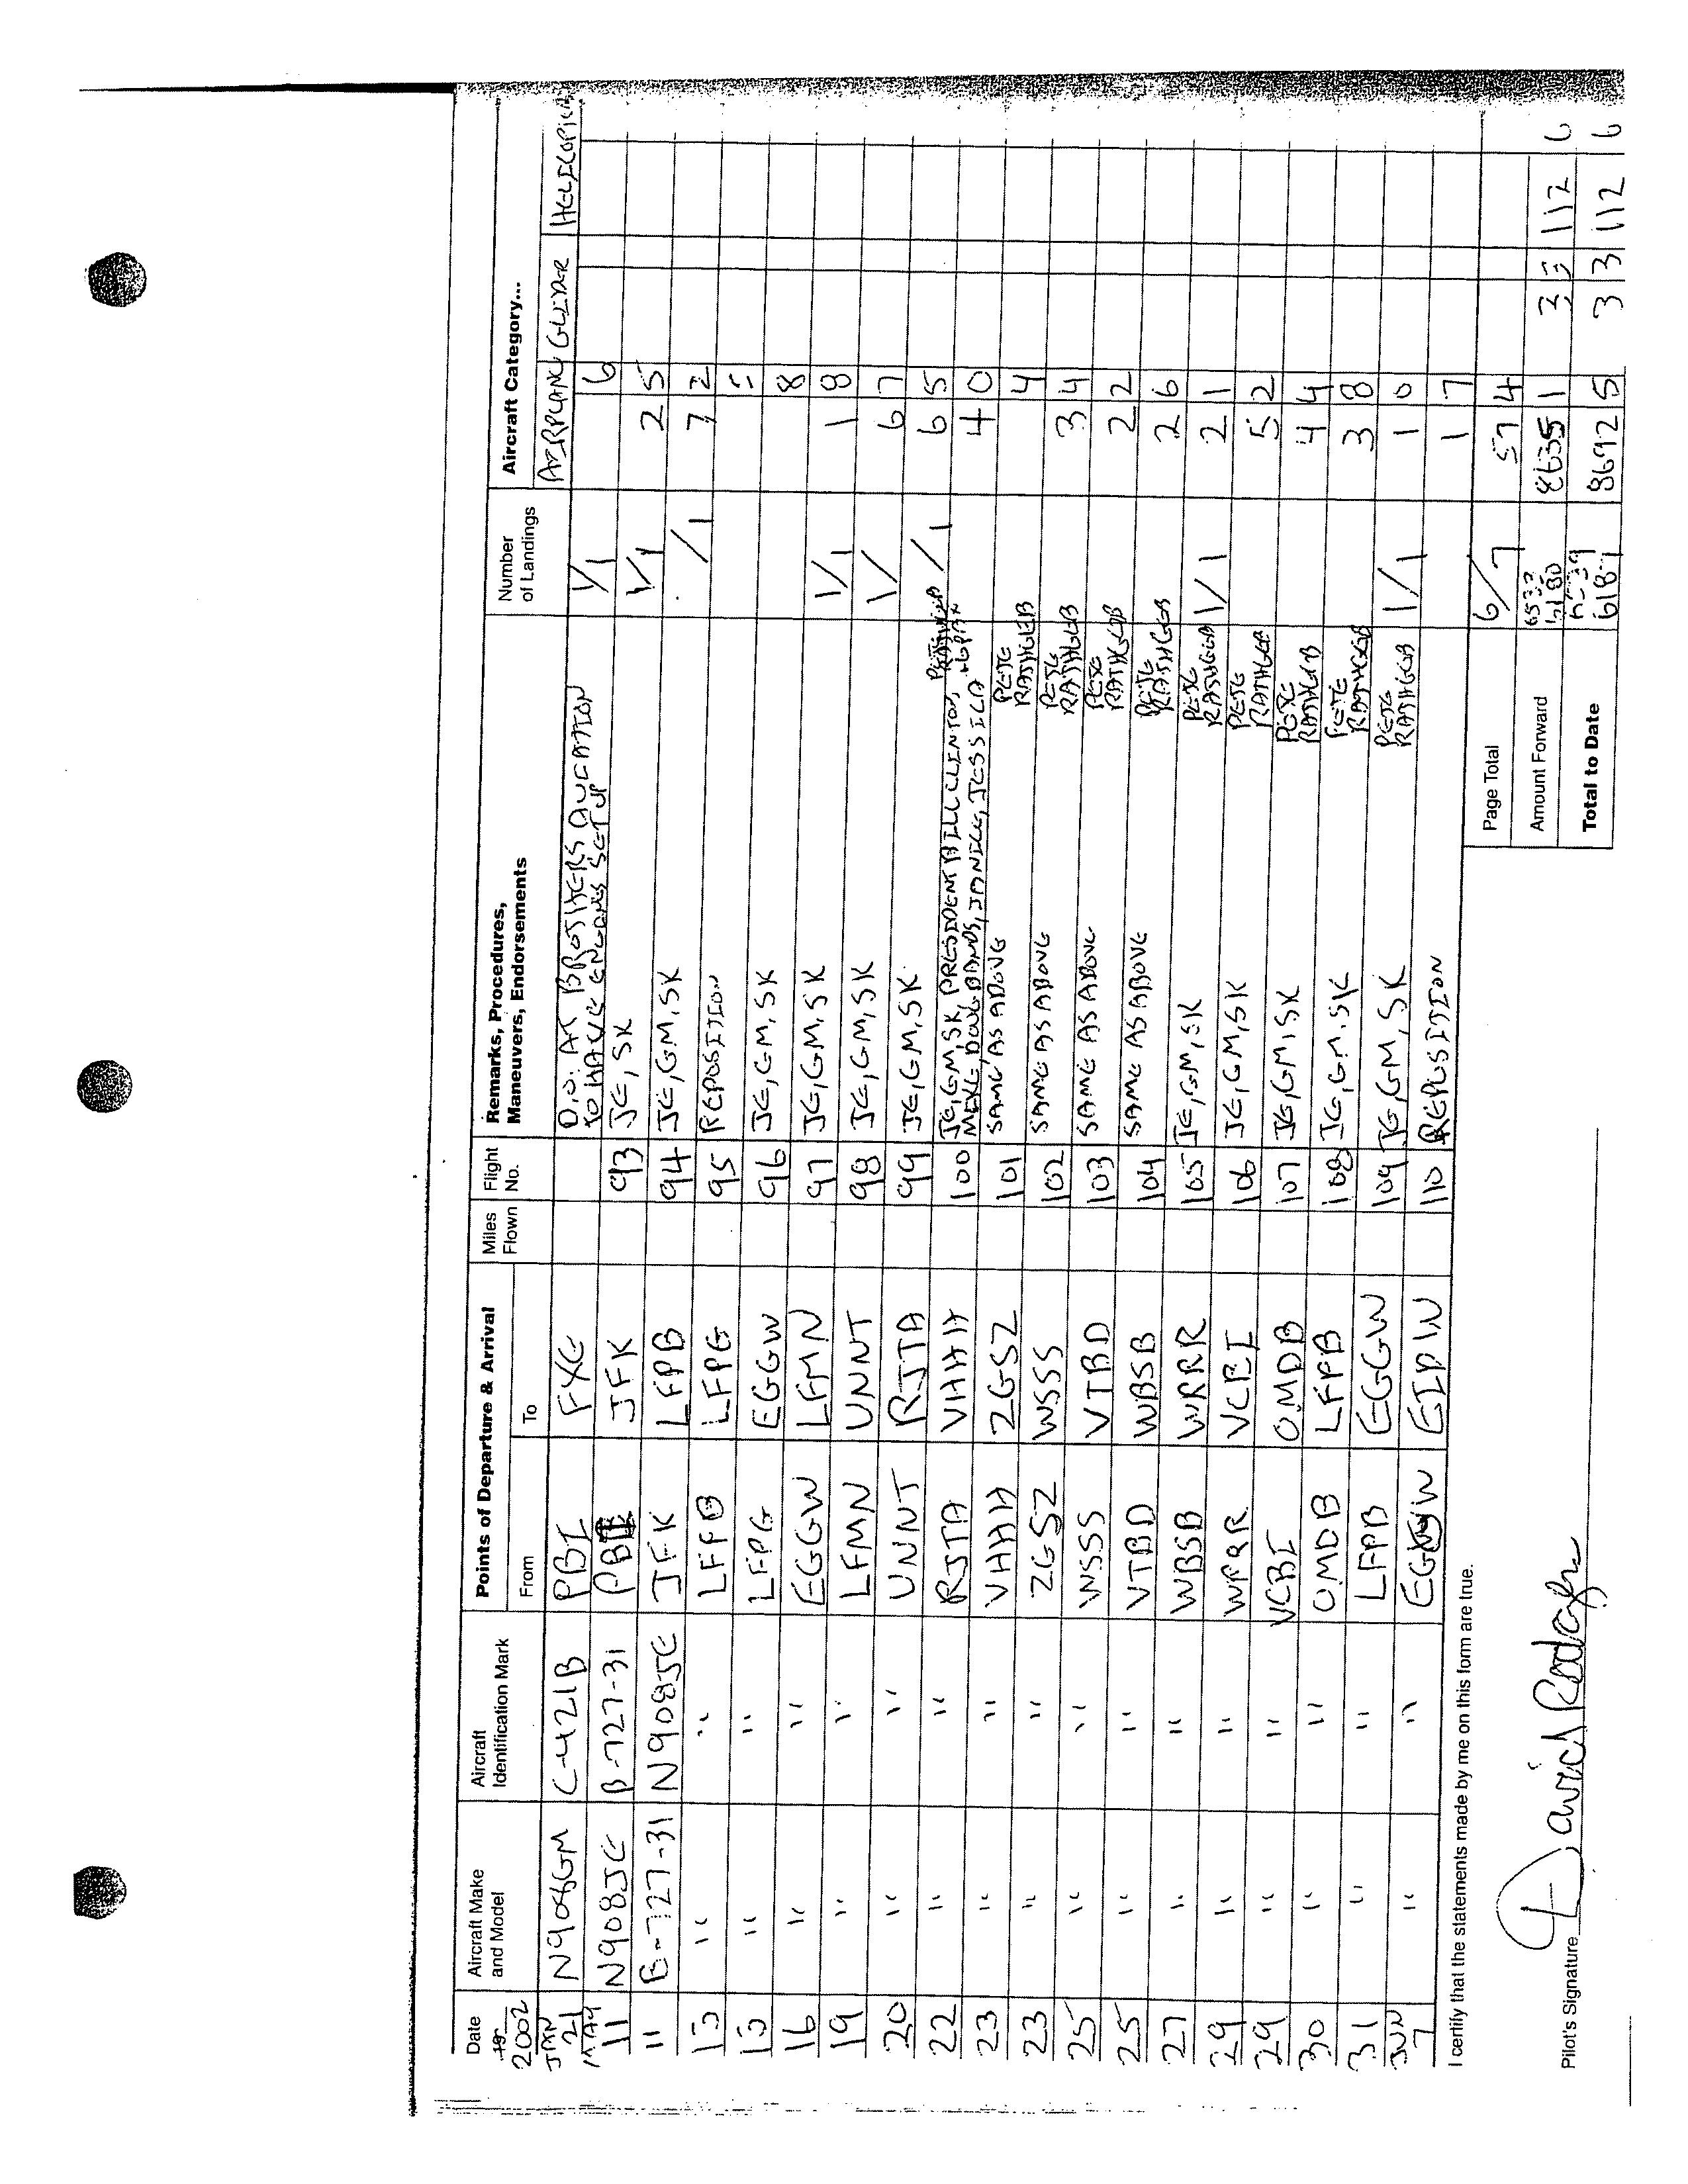 Date Aircraft Make and Model Aircraft Identification Mark Points of Departure & Arrival Miles Flown Flight No. Remarks, Procedures, Maneuvers, Endorsements Number of Landings Aircraft Category...
19
2002 From To AIRPLANE GLIDER HELICOPTER
JAN 21 N908GM C-421B PBI FXE D.O. AT BROTHERS AVCATION TO HAVE ENGINES SET UP 1/1 6
MAY 11 N908JE B-727-31 PBI JFK 93 JE, SK 1/1 2 5
11 B-727-31 N908JE JFK LFPB 94 JE, GM, SK /1 7 2
13 " " LFPB LFPG 95 REPOSITION 5
13 " " LFPG EGGW 96 JE, GM, SK 8
16 " " EGGW LFMN 97 JE, GM, SK 1/1 1 8
19 " " LFMN UNNT 98 JE, GM, SK 1/ 6 7
20 " " UNNT RJTA 99 JE, GM, SK /1 6 5
22 " " RJTA VHHH 100 JE, GM, SK, PRESIDENT BILL CLINTON, MIKE, DOUG BANDS, JANICE, JESSICA 4 0
23 " " VHHH ZGSZ 101 SAME AS ABOVE PETE RATHGEB 4
23 " " ZGSZ WSSS 102 SAME AS ABOVE PETE RATHGEB 3 4
25 " " WSSS VTBD 103 SAME AS ABOVE PETE RATHGEB 2 2
25 " " VTBD WBSB 104 SAME AS ABOVE PETE RATHGEB 2 6
27 " " WBSB WRRR 105 JE, GM, SK PETE RATHGEB 1/1 2 1
29 " " WRRR VCBI 106 JE, GM, SK PETE RATHGEB 5 2
29 " " VCBI OMDB 107 JE, GM, SK PETE RATHGEB 4 4
30 " " OMDB LFPB 108 JE, GM, SK PETE RATHGEB 3 8
31 " " LFPB EGGW 109 JE, GM, SK PETE RATHGEB 1/1 1 0
JUN 7 " " EGGW EIDW 110 REPOSITION 1 7
I certify that the statements made by me on this form are true.
Page Total 6/7 57 4
Amount Forward 8635 1 3 3 112 6
Total to Date 8692 5 3 3 112 6
Pilot's Signature David Rodgers